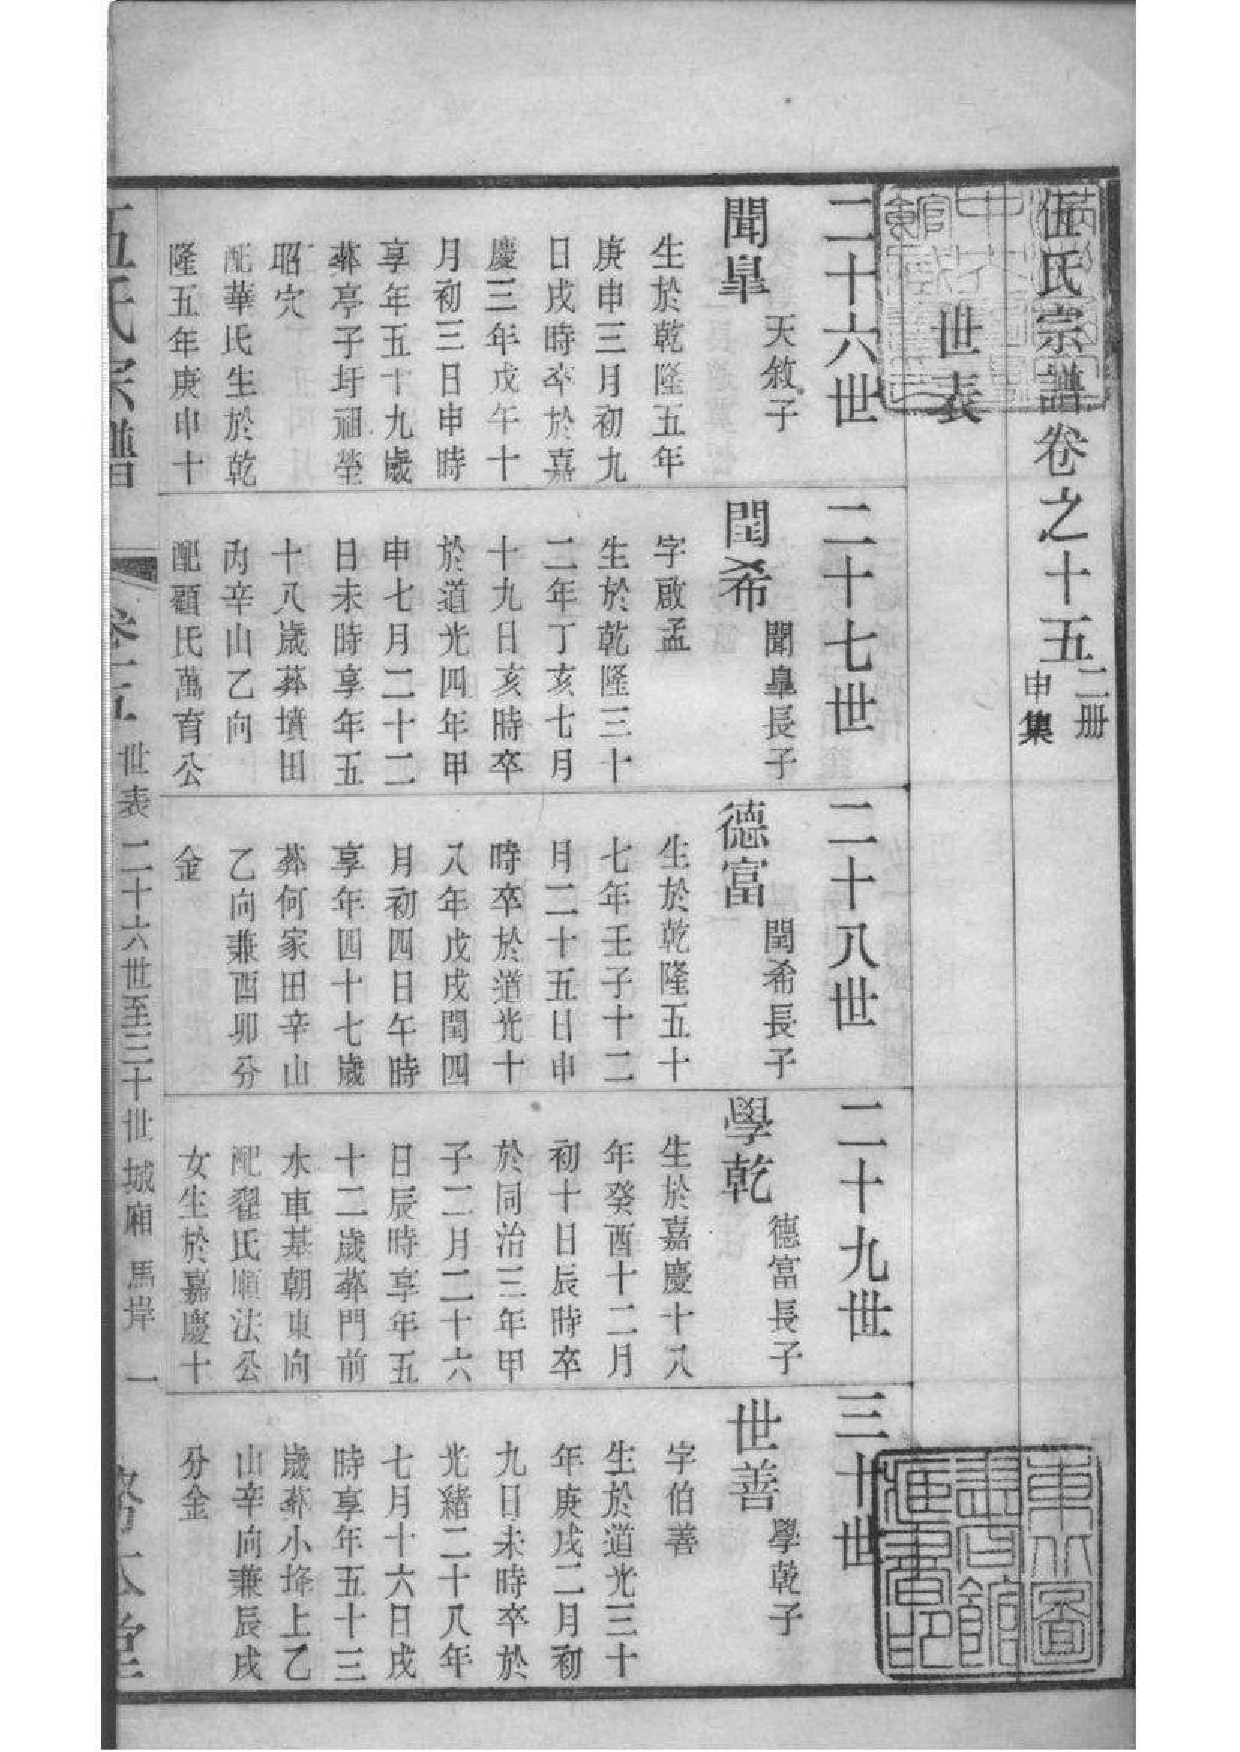 伍氏宗譜卷之十五
二冊
申集
世表
二十六世
聞臯
天敘子
生於乾隆五年
庚申三月初九
日戌時卒於嘉
慶三年戊午十
月初三日申時
享年五十九歲
葬亭子圩祖塋
昭穴
配華氏生於乾
隆五年庚申十
二十七世
閏希
聞臯長子
字啟孟
生於乾隆三十
二年丁亥七月
十九日亥時卒
於道光四年甲
申七月二十二
日未時享年五
十八歲葬墳田
內辛山乙向
配顧氏萬育公
二十八世
德富
閏希長子
生於乾隆五十
七年壬子十二
月二十五日申
時卒於道光十
八年戊戌閏四
月初四日午時
享年四十七歲
葬何家田辛山
乙向兼酉卯分
金
二十九世
學乾
德富長子
生於嘉慶十八
年癸酉十二月
初十日辰時卒
於同治三年甲
子二月二十六
日辰時享年五
十二歲葬門前
水車基朝東向
配翟氏順法公
女生於嘉慶十
三十世
世善
學乾子
字伯善
生於道光三十
年庚戌二月初
九日未時卒於
光緒二十八年
七月十六日戌
時享年五十三
歲葬小埄上乙
山辛向兼辰戌
分金
伍氏宗譜
卷十五
世表
二十六世至三十世
城廂
馬岸
一